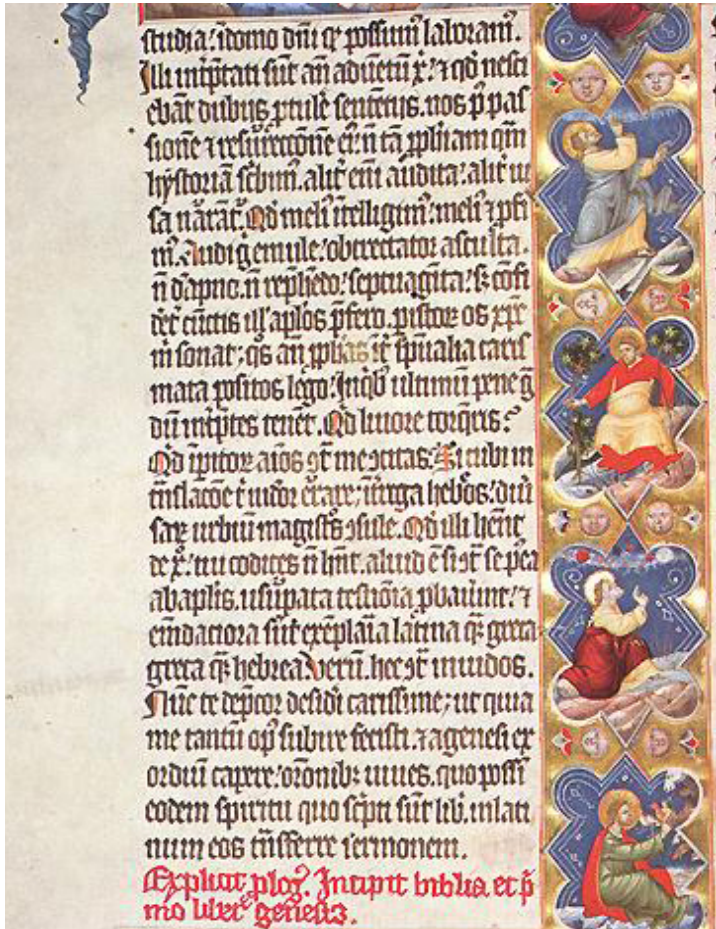 studia: ĩdomo dñi q̃ possumꝰ laboramꝰ.
Illi intp̃tati sũt añ aduẽtũ x̃: ⁊ qd̃ nesci
ebãt dubijs ꝓtulẽ sentẽtijs. nos pꝰ pas
sionẽ ⁊ resurrectõnẽ eiꝰ: ñ tã ꝓph̃iam qm̃
hystoriã sc̃bimꝰ. alit̃ eñi audita: alit̃ ui
sa nar̃ãt̃. Qd̃ meliꝰ ĩtelligimꝰ: meliꝰ ⁊ ꝓfi
mꝰ. Audi g̃ emule: obtrectator asculta.
ñ dãpno. ñ rep̃hẽdo: septuagĩta: sꝫ cõfi
dẽt̃ cũctis ill̃ ap̃los p̃fero. ꝑ istoꝝ os xp̃c
m̃ sonat; q̃s añ ꝓph̃as ĩt̃ sp̃ualia caris
mata positos lego: Inq̃bꝫ ultimũ pene g̃
dũ intp̃tes tenẽt. Qd̃ liuore torq̃ris:
Qd̃ ĩpitoꝝ aĩos ↄt̃ me ↄcitas. Sicubi in
tñslacõe t̃ uidor ẽrare; ĩt̃roga heb̃os: diũ
saꝝ urbium magistꝰs ↄsule. Qd̃ illi hẽnt
de x̃: tui codices ñ hñt. aliud ẽ si ↄt̃ se postea
abap̃lis. usũpata testiõia ꝓbauerũt: ⁊
emẽdatiora sũt exẽplaĩa latina qꝫ greca
greca qꝫ hebrea. Verũ. hec ↄt̃ inuidos.
Nũc te dep̃cor desidi carissime; ut quia
me tantũ opꝰ subire fecisti. ⁊ agenesi ex
ordiũ capere: or̃onibꝫ iuues. quo possĩ
eodem spiritu quo sc̃pti sũt lib̃. inlati
num eos tñsferre sermonem.
Explicit ꝓlogꝰ. Incipit biblia. et p̃
mo liber geñesis.